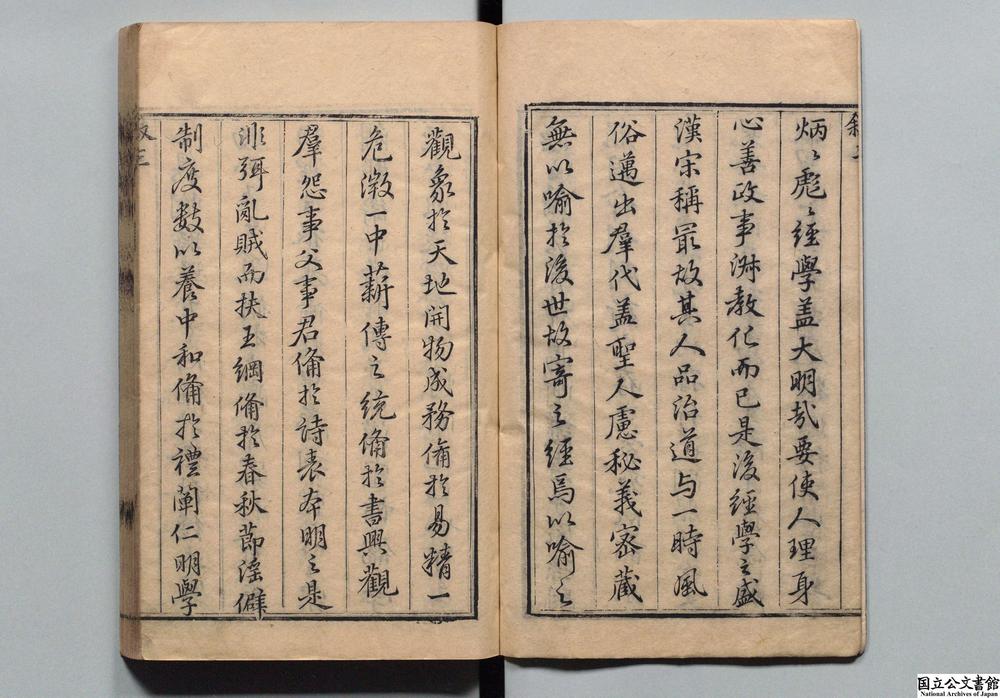 炳〻彪〻經學盖大明哉要使人理身
心善政事淑教化而已是後經學之盛
漢宋稱最故其人品治道与一時風
俗邁出羣代盖聖人慮秘義密藏
無以喻於後世故寄之經焉以喻之
觀象於天地開物成務俻於易精一
危微一中薪傳之統俻於書興觀
羣怨事父事君俻於詩表本明之是
非弭亂賊而扶王綱俻於春秋節淫僻
制度数以養中和俻於禮闡仁明學
叙三
国立公文書館
National Archives of Japan